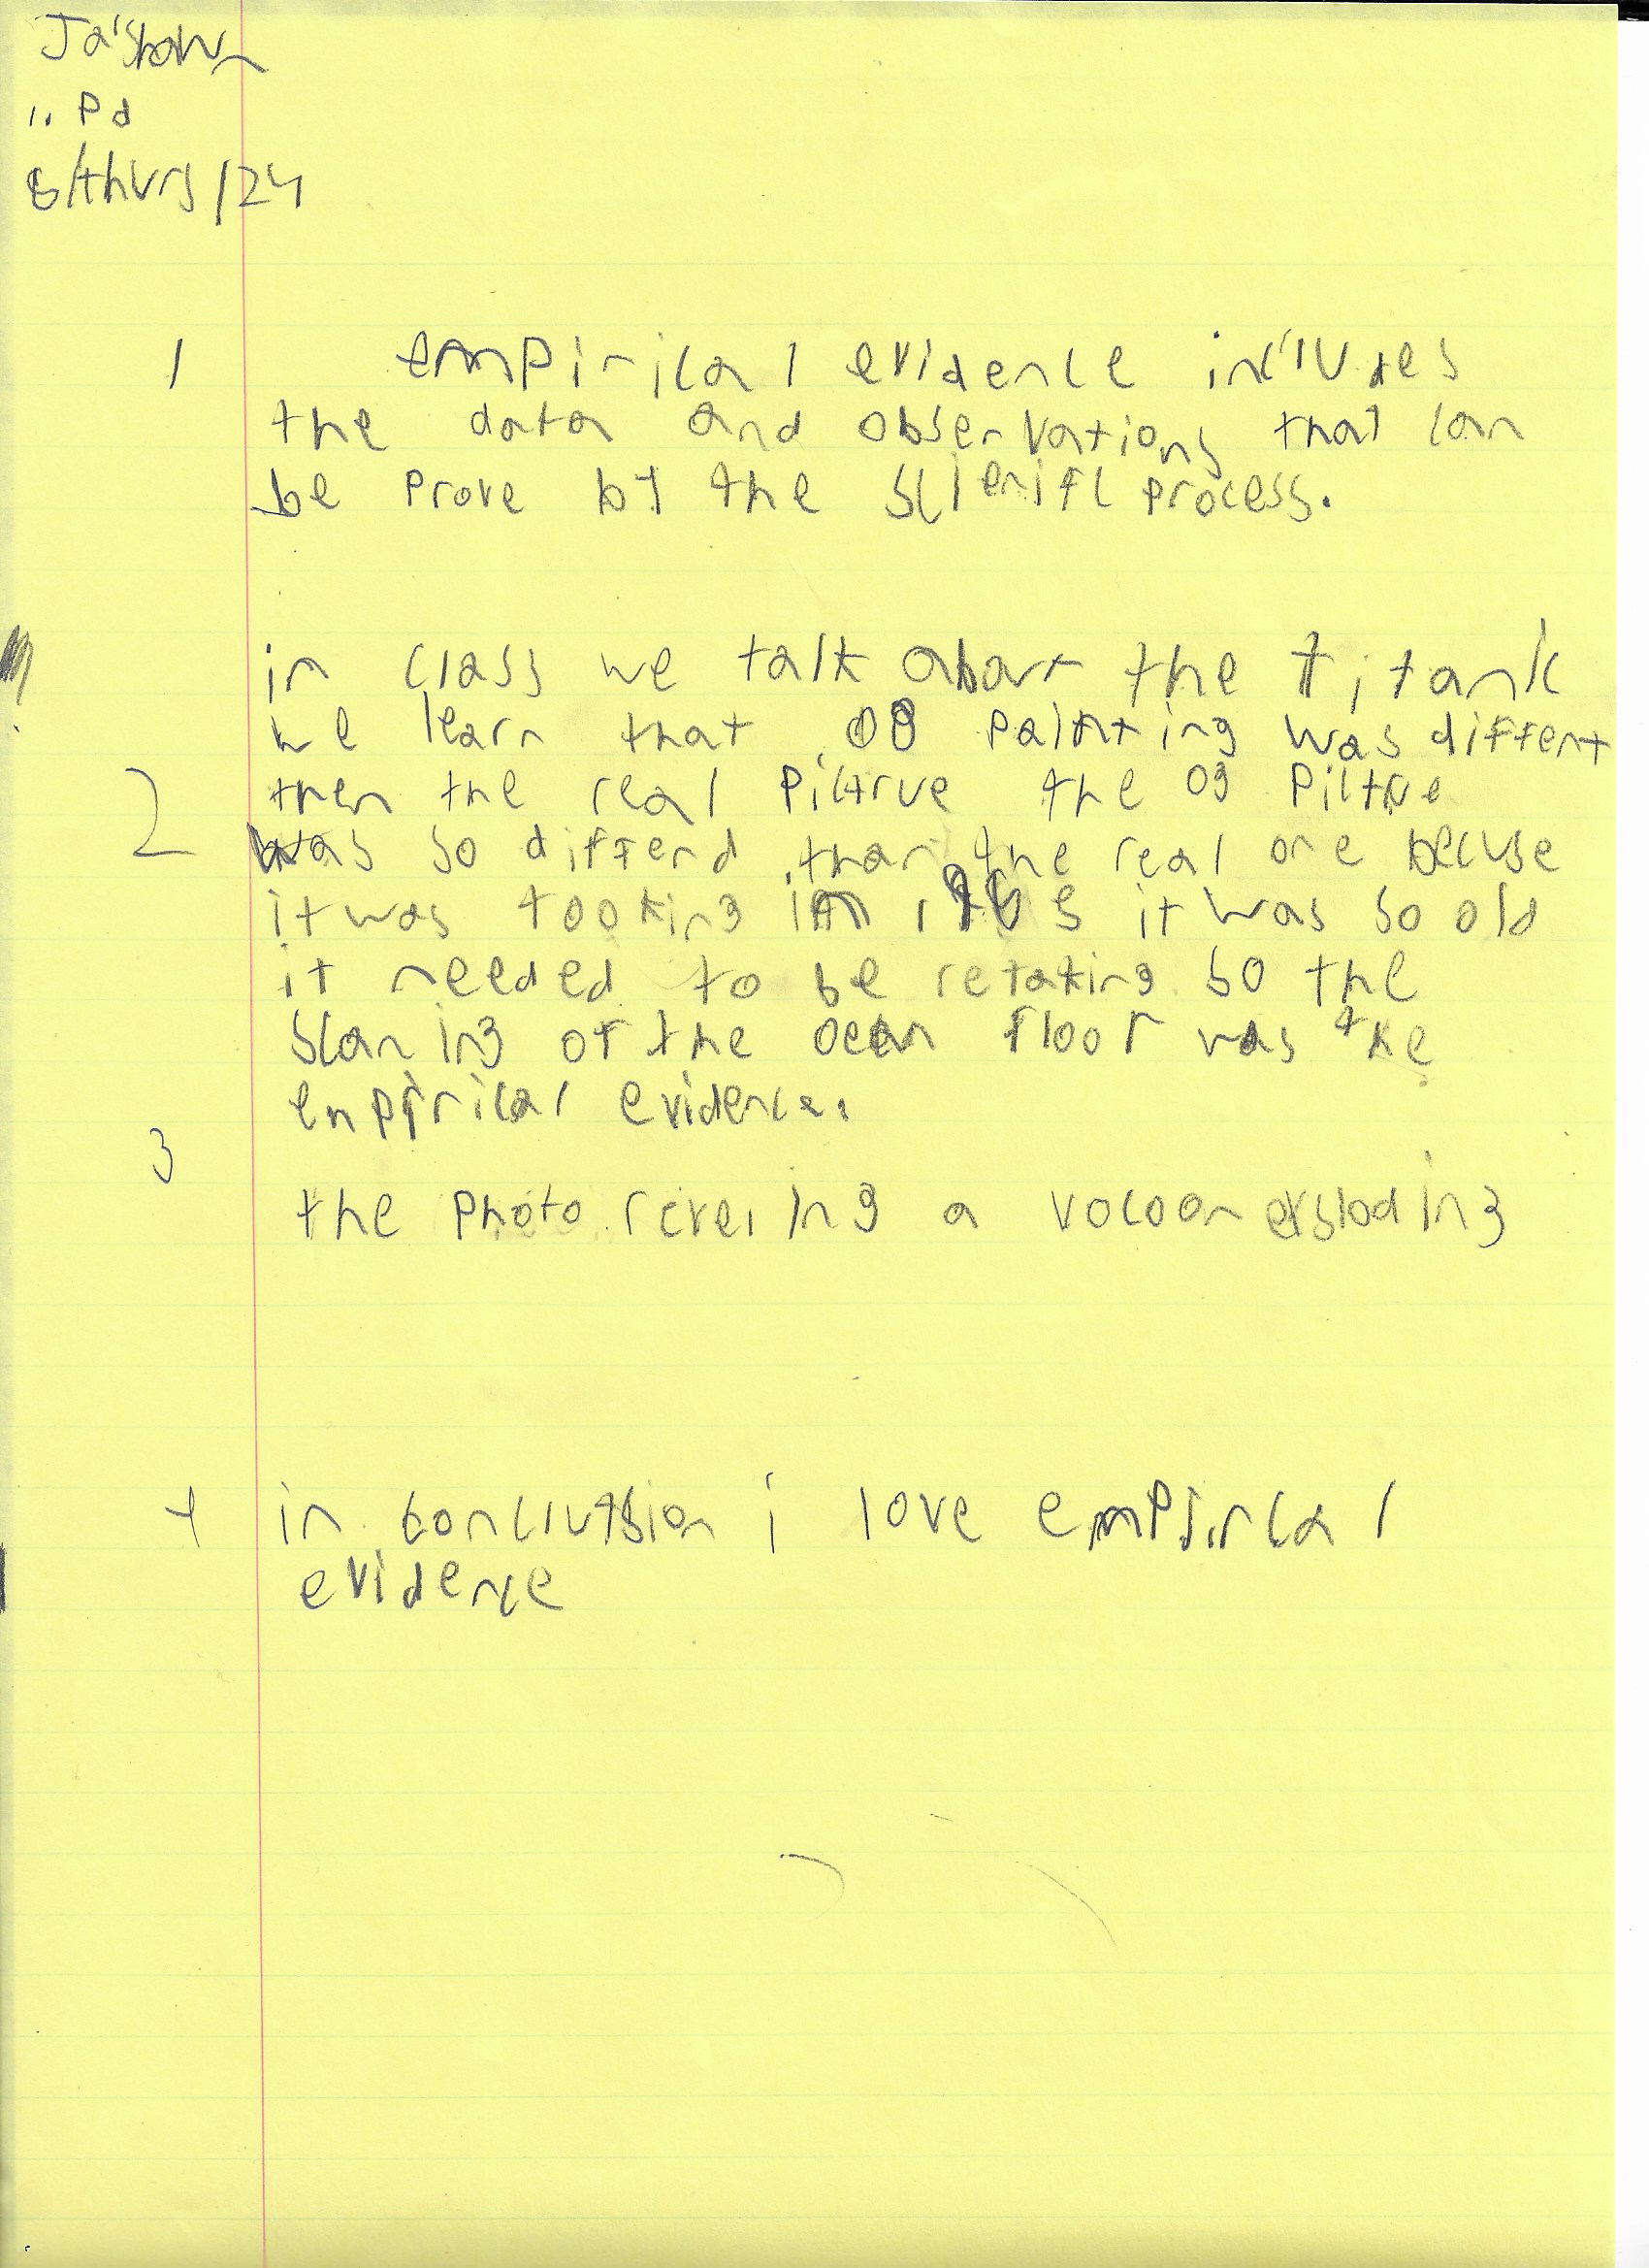 Ja'Shawn
Pd
8/thurs/24
1 empirical evidence inclutes
the data and observations that can
be prove by the scienifc process.
in class we talk about the Titanic
we learn that OG painting was diffent
2 then the real Pictrue the OG Pictrue
was so differnd than the real one becuse
it was tooking in it was so old
it needed to be retaking so the
Scaning of the ocean floor was the
enpirical evidence.
3
the photo reveiing a vocoon exsloding
4 in conclutsion i love empirical
evidence